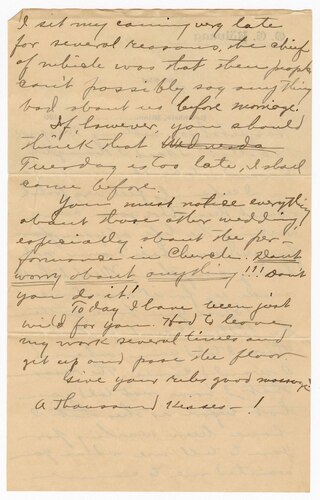 I set my coming very late
for several reasons, the chief
of which was that then people
can't possibly say anything
bad about us before marriage.
If, however, you should
think that Wednesda
Tuesday is too late, I shall
come before.
You must notice everything
about those other wedding,
especially about the per-
formance in Church. Don't
worry about anything!!! Don't
you do it!
Today I have been just
wild for you. Had to leave
my work several times and
get up and pace the floor
Give your ribs good massage
A thousand kisses-!